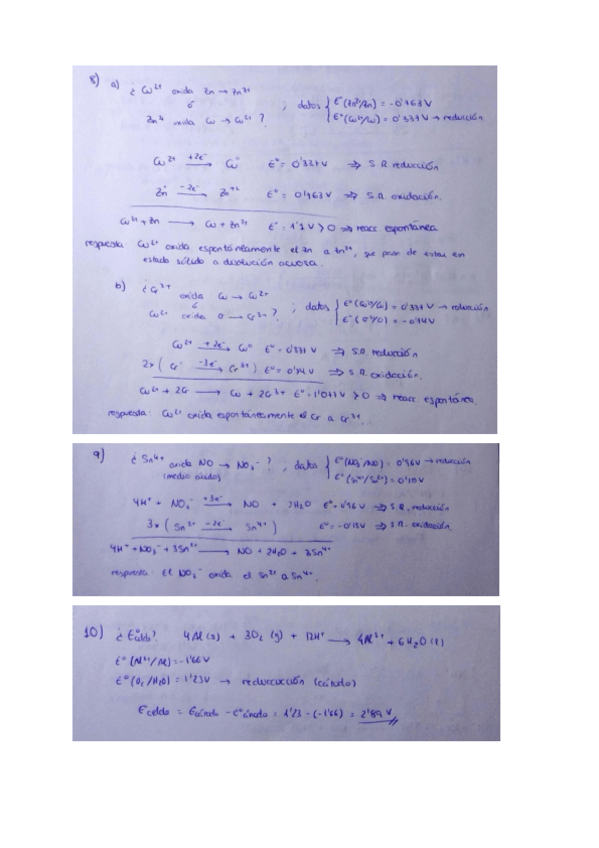 8) a) ¿ Cu²⁺ oxida Zn → Zn²⁺
ó ; datos { E°(Zn²⁺/Zn) = -0'763 V
Zn²⁺ oxida Cu → Cu²⁺ ? E°(Cu²⁺/Cu) = 0'337 V → reducción
Cu²⁺ +2e⁻ → Cu° E° = 0'337 V ⇒ S.R. reducción
Zn° -2e⁻ → Zn⁺² E° = 0'763 V ⇒ S.R. oxidación.
Cu²⁺ + Zn → Cu + Zn²⁺ E° = 1'1 V > 0 ⇒ reacc espontánea
respuesta: Cu²⁺ oxida espontáneamente el Zn a Zn²⁺, que pasa de estar en
estado sólido a disolución acuosa.
b) ¿ Cr³⁺ oxida Cu → Cu²⁺
ó ; datos { E°(Cu²⁺/Cu) = 0'337 V → reducción
Cu²⁺ oxida Cr → Cr³⁺ ?
Cu²⁺ +2e⁻ → Cu° E° = 0'337 V ⇒ S.R. reducción
2x ( Cr -3e⁻ → Cr³⁺ ) E° = 0'74 V ⇒ S.R. oxidación.
Cu²⁺ + 2Cr → Cu + 2Cr³⁺ E° = 1'077 V > 0 ⇒ reacc espontánea.
respuesta: Cu²⁺ oxida espontáneamente el Cr a Cr³⁺.
9) ¿ Sn⁴⁺ oxida NO → NO₃⁻ ? ; datos { E°(NO₃⁻/NO) = 0'96 V → reducción
(medio ácido) E°(Sn⁴⁺/Sn²⁺) = 0'15 V
4H⁺ + NO₃⁻ +3e⁻ → NO + 2H₂O ⇒ S.R. reducción
3x ( Sn²⁺ -2e⁻ → Sn⁴⁺ ) E° = -0'15 V ⇒ S.R. oxidación.
4H⁺ + NO₃⁻ + 3Sn²⁺ → NO + 2H₂O + 3Sn⁴⁺
respuesta: El NO₃⁻ oxida el Sn²⁺ a Sn⁴⁺.
10) ¿ E°celda? 4Al (s) + 3O₂ (g) + 12H⁺ → 4Al³⁺ + 6H₂O (l)
E° (Al³⁺/Al) = -1'66 V
E° (O₂/H₂O) = 1'23 V → reduccucción (cátodo)
Ecelda = Ecátodo - E°ánodo = 1'23 - (-1'66) = 2'89 V